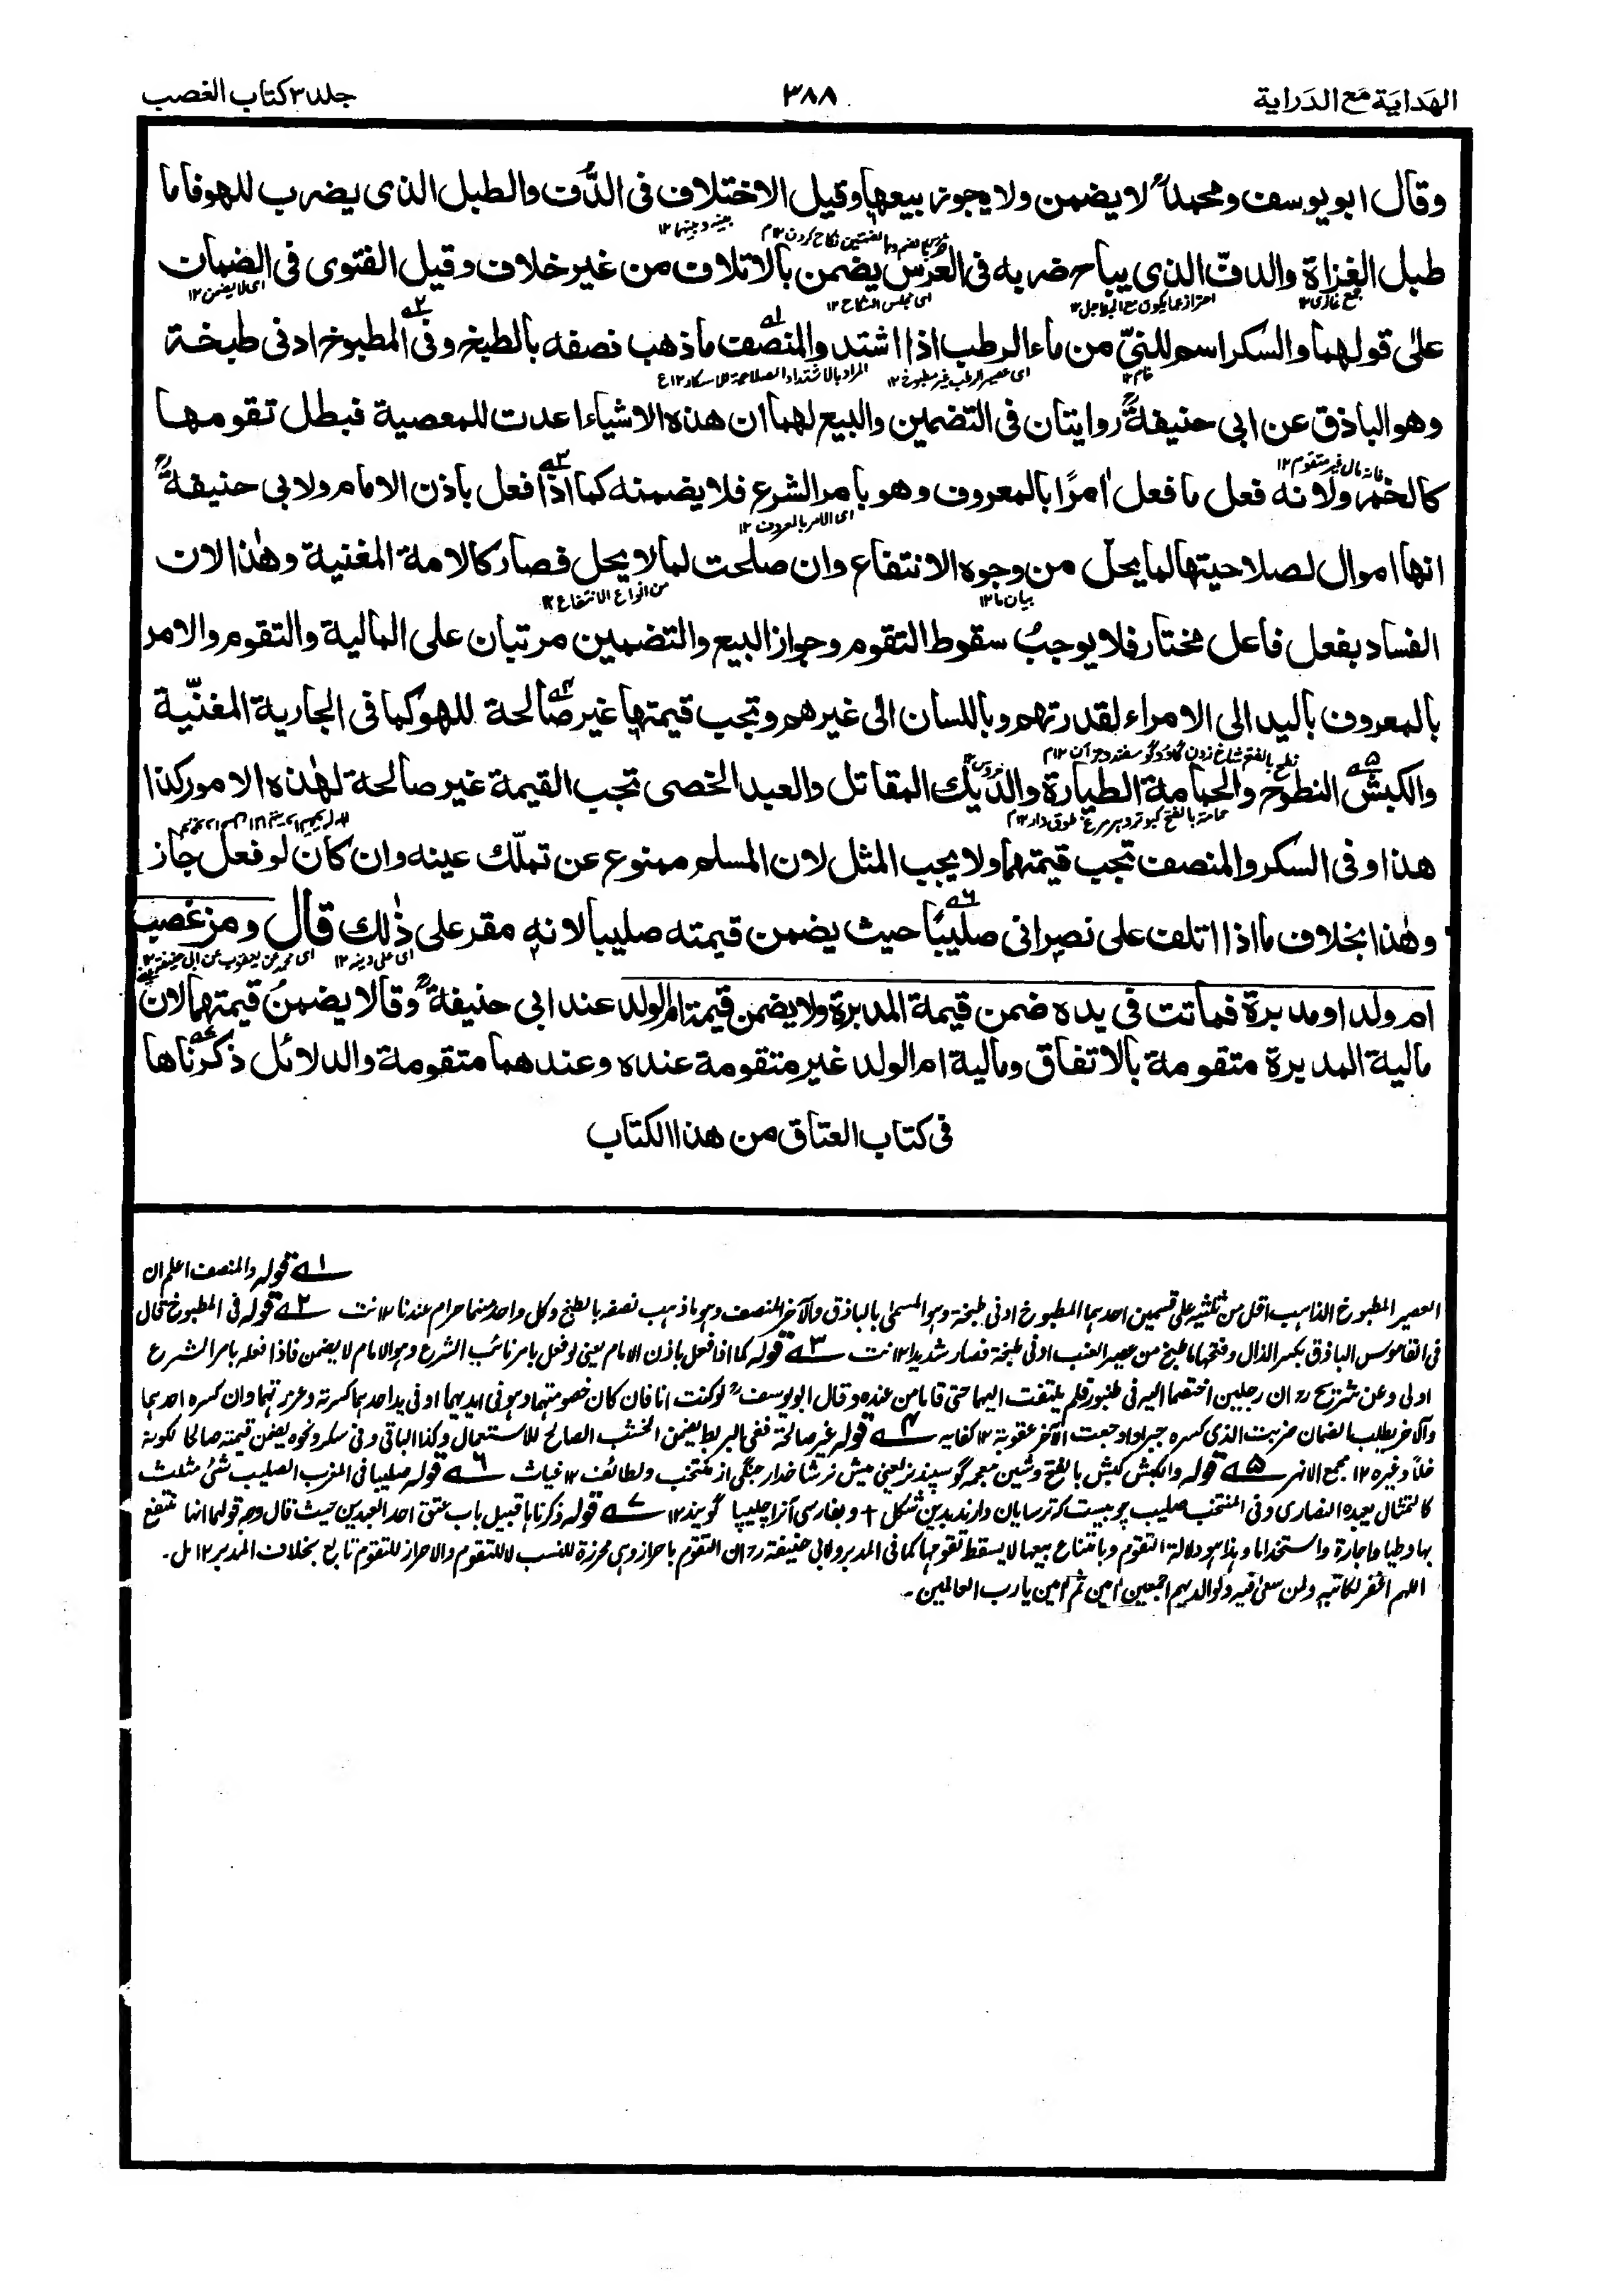 الهداية مع الدراية
٣٨٨
جلد ٣ كتاب الغصب
وقال ابو يوسف ومحمدؒ لا يضمن ولا يجوز بيعها وقيل الاختلاف فى الدُّف والطبل الذى يضرب للهو فاما
طبل الغزاة والدف الذى يباح ضربه فى العرس يضمن بالاتلاف من غير خلاف وقيل الفتوى فى الضمان
اى لا يضمن ١٢
جمع غازى ١٢
اى مجلس النكاح ١٢
على قولهما والسكر اسم للنيّ من ماء الرطب اذا اشتد والمنصف ما ذهب نصفه بالطبخ وفى المطبوخ ادنى طبخة
خام ١٢
اى عصير الرطب غير مطبوخ ١٢
المراد بالاشتداد الصلاحية للاسكار ١٢ ع
وهو الباذق عن ابى حنيفةؒ روايتان فى التضمين والبيع لهما ان هذه الاشياء اعدت للمعصية فبطل تقومها
فانه مال غير متقوم ١٢
كالخمر ولانه فعل ما فعل اٰمرًا بالمعروف وهو بامر الشرع فلا يضمنه كما اذا فعل باذن الامام ولابى حنيفةؒ
اى الامر بالمعروف ١٢
انها اموال لصلاحيتها لما يحل من وجوه الانتفاع وان صلحت لما لا يحل فصار كالامة المغنية وهٰذا لان
بيان ما ١٢
من انواع الانتفاع ١٢
الفساد بفعل فاعل مختار فلا يوجب سقوط التقوم وجواز البيع والتضمين مرتبان على المالية والتقوم والامر
بالمعروف باليد الى الامراء لقدرتهم وباللسان الى غيرهم وتجب قيمتها غير صالحة للهو كما فى الجارية المغنّية
والكبش النطوح والحمامة الطيارة والديك المقاتل والعبد الخصى تجب القيمة غير صالحة لهٰذه الامور كذا
هذا وفى السكر والمنصف تجب قيمتهما ولا يجب المثل لان المسلم ممنوع عن تملّك عينه وان كان لو فعل جاز
وهٰذا بخلاف ما اذا اتلف على نصرانى صليبًا حيث يضمن قيمته صليبا لانه مقر على ذٰلك قال ومن غصب
اى على دينه ١٢
اى محمد عن يعقوب عن ابى حنيفة ١٢
ام ولد او مدبرة فماتت فى يده ضمن قيمة المدبرة ولا يضمن قيمة ام الولد عند ابى حنيفةؒ وقالا يضمن قيمتهما لان
مالية المدبرة متقومة بالاتفاق ومالية ام الولد غير متقومة عنده وعندهما متقومة والدلائل ذكرناها
فى كتاب العتاق من هذا الكتاب
١ـه قوله والمنصف اعلم ان
العصير المطبوخ الذاهب اقل من ثلثيه على قسمين احدهما المطبوخ ادنى طبخة وهو المسمٰى بالباذق والآخر المنصف وهو ما ذهب نصفه بالطبخ وكل واحد منهما حرام عندنا ١٢ نت ٢ـه قوله فى المطبوخ قال
فى القاموس الباذق بكسر الذال وفتحها ما طبخ من عصير العنب ادنى طبخة فصار شديدا ١٢ نت ٣ـه قوله كما اذا فعل باذن الامام يعنى لو فعل بامر نائب الشرع وهو الامام لا يضمن فاذا فعله بامر الشرع
اولى وعن شريح رح ان رجلين اختصما اليه فى طنبور فلم يلتفت اليهما حتى قاما من عنده وقال ابو يوسفؒ لو كنت انا فان كان خصومتهما وهو فى ايديهما او فى يد احدهما كسرته وعزرتهما وان كسره احدهما
والآخر يطلب الضمان ضربت الذى كسره جبرا واوجعت الآخر عقوبة ١٢ كفايه ٤ـه قوله غير صالحة ففى البربط يضمن الخشب الصالح للاستعمال وكذا الباقى وفى سكر ونحوه يضمن قيمته صالحا لكونه
خلًا وغيره ١٢ مجمع الانهر ٥ـه قوله والكبش كبش بالفتح وشين معجمه گوسپند نر يعنى ميش نر شاخدار جنگى از منتخب ولطائف ١٢ غياث ٦ـه قوله صليبا فى المغرب الصليب شئ مثلث
كالتمثال يعبده النصارى وفى المنتخب صليب چوبيست كه ترسايان دارند بدين شكل + وبفارسى آنرا چليپا گويند ١٢ ٧ـه قوله ذكرناها قبيل باب عتق احد العبدين حيث قال وجه قولهما انها تنتفع
بها وطيا واجارة واستخداما وهذا هو دلالة التقوم وبامتناع بيعها لا يسقط تقومها كما فى المدبر ولابى حنيفة رح ان التقوم باحراز وهى محرزة للنسب لا للتقوم والاحراز للتقوم تابع بخلاف المدبر ١٢ مل۔
اللهم اغفر لكاتبه ولمن سعى فيه ولوالديهم اجمعين اٰمين ثم اٰمين يا رب العالمين۔